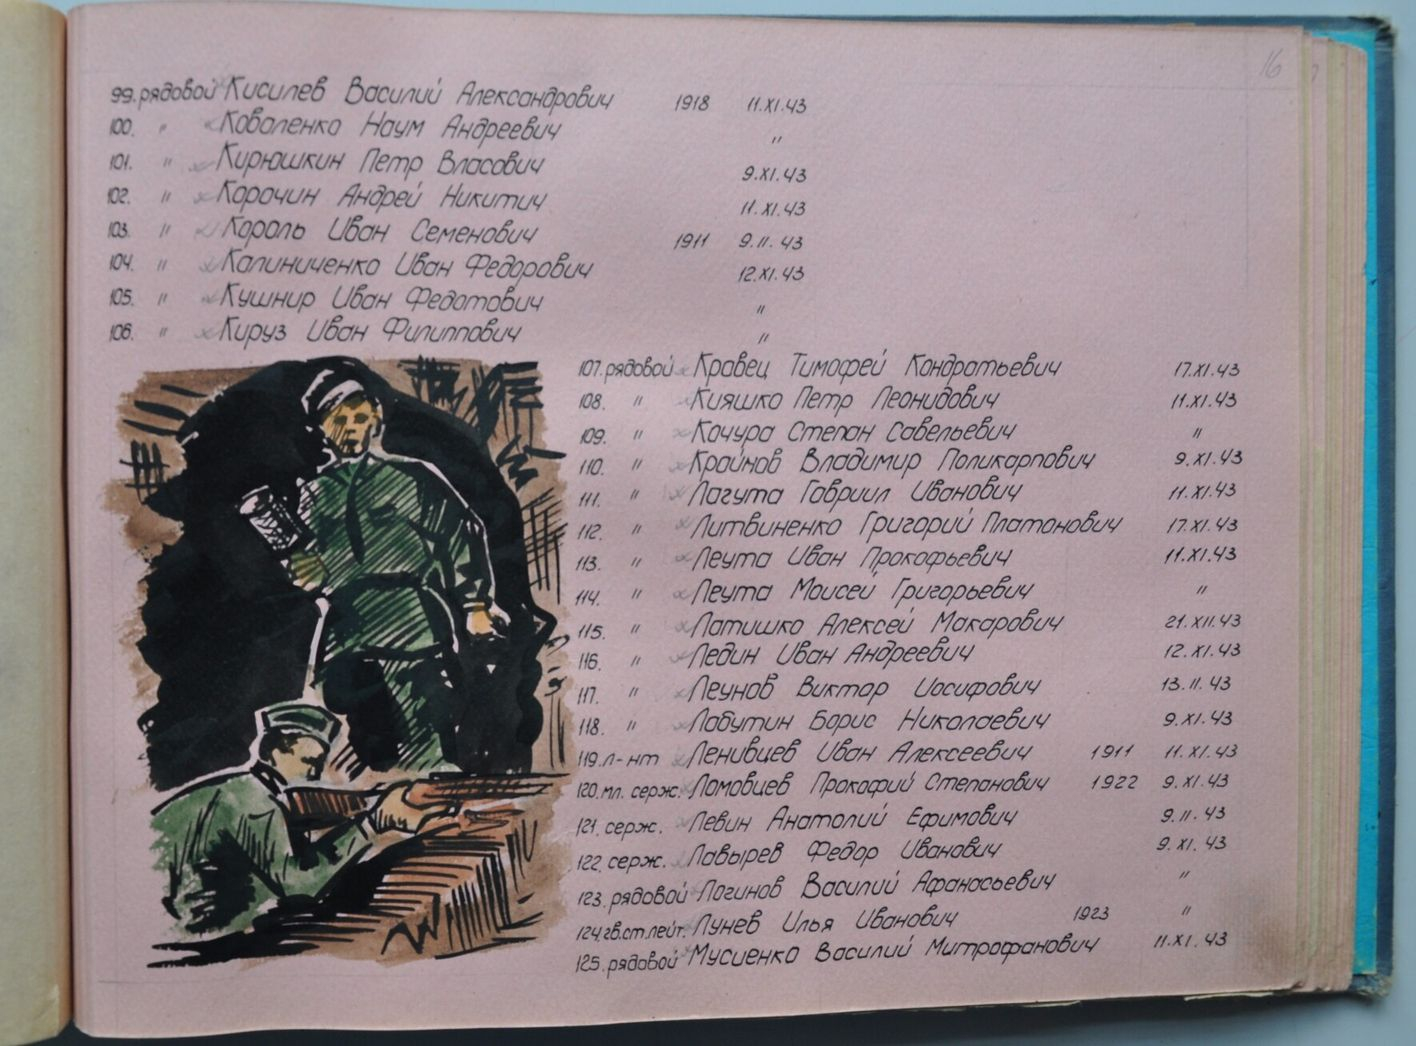 16
99. рядовой Кисилев Василий Александрович 1918 11.XI.43
100. " Коваленко Наум Андреевич "
101. " Кирюшкин Петр Власович 9.XI.43
102. " Корочин Андрей Никитич 11.XI.43
103. " Король Иван Семенович 1911 9.II.43
104. " Калиниченко Иван Федорович 12.XI.43
105. " Кушнир Иван Федотович "
106. " Кируз Иван Филиппович "
107. рядовой Кравец Тимофей Кондратьевич 17.XI.43
108. " Кияшко Петр Леонидович 11.XI.43
109. " Кочура Степан Савельевич "
110. " Крайнов Владимир Поликарпович 9.XI.43
111. " Лагута Гавриил Иванович 11.XI.43
112. " Литвиненко Григорий Платонович 17.XI.43
113. " Леута Иван Прокофьевич 11.XI.43
114. " Леута Моисей Григорьевич "
115. " Латишко Алексей Макарович 21.XII.43
116. " Ледин Иван Андреевич 12.XI.43
117. " Леунов Виктар Иосифович 13.II.43
118. " Лабутин Борис Николаевич 9.XI.43
119. л-нт Ленивцев Иван Алексеевич 1911 11.XI.43
120. мл. серж. Ломовцев Прокофий Степанович 1922 9.XI.43
121. серж. Левин Анатолий Ефимович 9.II.43
122. серж. Лавырев Федор Иванович 9.XI.43
123. рядовой Логинов Василий Афанасьевич "
124. гв.ст.лейт. Лунев Илья Иванович 1923 "
125. рядовой Мусиенко Василий Митрофанович 11.XI.43